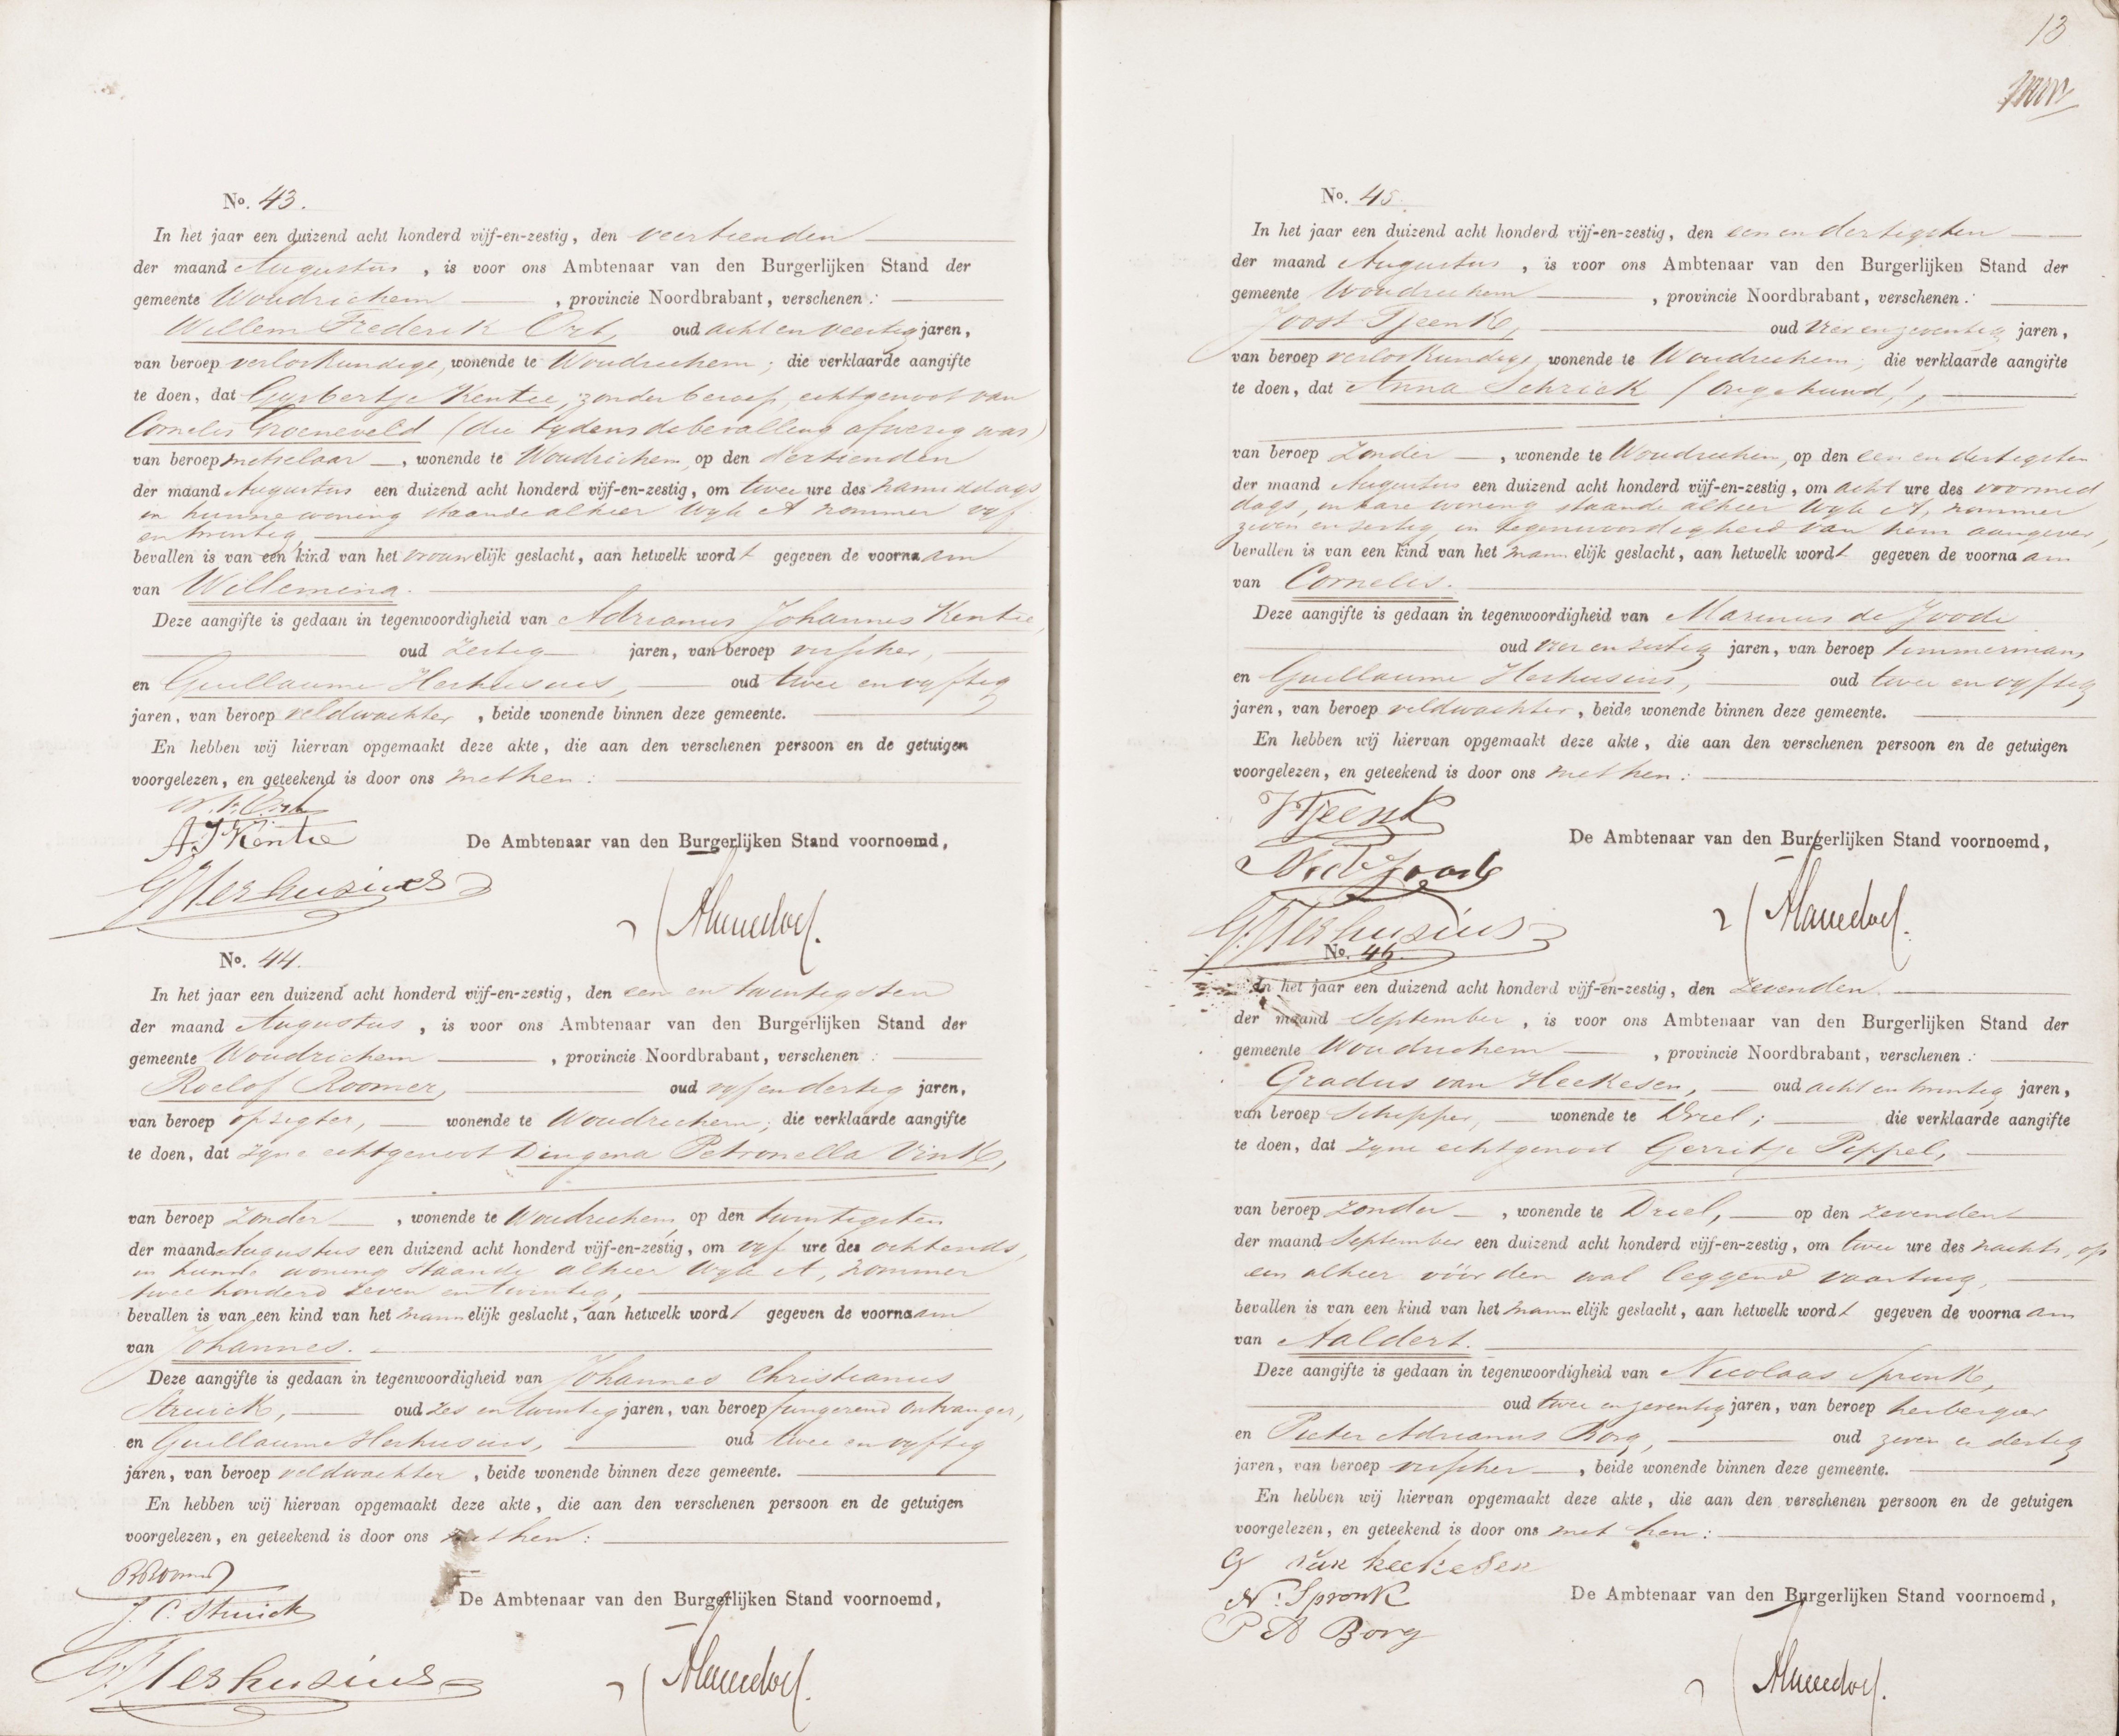 No. 43.
In het jaar een duizend acht honderd vijf-en-zestig, den veertienden
der maand Augustus, is voor ons Ambtenaar van den Burgerlijken Stand der
gemeente Woudrichem, provincie Noordbrabant, verschenen:
Willem Frederik Ort, oud acht en veertig jaren,
van beroep verloskundige, wonende te Woudrichem; die verklaarde aangifte
te doen, dat Gysbertje Kentie, zonder beroep, echtgenoot van
Cornelis Groeneveld (die tydens de bevalling afwezig was)
van beroep metselaar, wonende te Woudrichem, op den dertienden
der maand Augustus een duizend acht honderd vijf-en-zestig, om twee ure des namiddags
in hunne woning staande alhier Wyk A nommer vyf
en twintig,
bevallen is van een kind van het vrouwelijk geslacht, aan hetwelk wordt gegeven de voornaam
van Willemina.
Deze aangifte is gedaan in tegenwoordigheid van Adrianus Johannes Kentie,
oud zestig jaren, van beroep visscher,
en Guillaume Herhusius, oud twee en vyftig
jaren, van beroep veldwachter, beide wonende binnen deze gemeente.
En hebben wij hiervan opgemaakt deze akte, die aan den verschenen persoon en de getuigen
voorgelezen, en geteekend is door ons met hen:
W. F. Ort
A. J. Kentie
De Ambtenaar van den Burgerlijken Stand voornoemd,
G. Herhusius
No. 44.
In het jaar een duizend acht honderd vijf-en-zestig, den een en twintigsten
der maand Augustus, is voor ons Ambtenaar van den Burgerlijken Stand der
gemeente Woudrichem, provincie Noordbrabant, verschenen:
Roelof Roomer, oud vyf en dertig jaren,
van beroep opzigter, wonende te Woudrichem; die verklaarde aangifte
te doen, dat zyne echtgenoot Dingena Petronella Vink,
van beroep zonder, wonende te Woudrichem, op den twintigsten
der maand Augustus een duizend acht honderd vijf-en-zestig, om vyf ure des ochtends,
in hunne woning staande alhier Wyk A, nommer
twee honderd zeven en twintig,
bevallen is van een kind van het mannelijk geslacht, aan hetwelk wordt gegeven de voornaam
van Johannes.
Deze aangifte is gedaan in tegenwoordigheid van Johannes Christianus
Struick, oud zes en twintig jaren, van beroep fungerend ontvanger,
en Guillaume Herhusius, oud twee en vyftig
jaren, van beroep veldwachter, beide wonende binnen deze gemeente.
En hebben wij hiervan opgemaakt deze akte, die aan den verschenen persoon en de getuigen
voorgelezen, en geteekend is door ons met hen:
R Roomer
J. C. Struick
De Ambtenaar van den Burgerlijken Stand voornoemd,
G. Herhusius
13
No. 45.
In het jaar een duizend acht honderd vijf-en-zestig, den een en dertigsten
der maand Augustus, is voor ons Ambtenaar van den Burgerlijken Stand der
gemeente Woudrichem, provincie Noordbrabant, verschenen:
Joost Tjeenk, oud vier en zeventig jaren,
van beroep verloskundige, wonende te Woudrichem; die verklaarde aangifte
te doen, dat Anna Schrick (ongehuwd),
van beroep zonder, wonende te Woudrichem, op den een en dertigsten
der maand Augustus een duizend acht honderd vijf-en-zestig, om acht ure des voormid
dags, in hare woning staande alhier Wyk A, nommer
zeven en sestig, in tegenwoordigheid van hem aangever,
bevallen is van een kind van het mannelijk geslacht, aan hetwelk wordt gegeven de voornaam
van Cornelis.
Deze aangifte is gedaan in tegenwoordigheid van Marinus de Joode
oud vier en zestig jaren, van beroep timmerman,
en Guillaume Herhusius, oud twee en vyftig
jaren, van beroep veldwachter, beide wonende binnen deze gemeente.
En hebben wij hiervan opgemaakt deze akte, die aan den verschenen persoon en de getuigen
voorgelezen, en geteekend is door ons met hen:
J Tjeenk
De Ambtenaar van den Burgerlijken Stand voornoemd,
M de Joode
G. Herhusius
No. 46.
In het jaar een duizend acht honderd vijf-en-zestig, den zevenden
der maand September, is voor ons Ambtenaar van den Burgerlijken Stand der
gemeente Woudrichem, provincie Noordbrabant, verschenen:
Gradus van Heekesen, oud acht en twintig jaren,
van beroep Schipper, wonende te Driel; die verklaarde aangifte
te doen, dat zyne echtgenoot Gerritje Peppel,
van beroep zonder, wonende te Driel, op den zevenden
der maand September een duizend acht honderd vijf-en-zestig, om twee ure des nachts, op
een alhier vóór den wal leggend vaartuig,
bevallen is van een kind van het mannelijk geslacht, aan hetwelk wordt gegeven de voornaam
van Aaldert.
Deze aangifte is gedaan in tegenwoordigheid van Nicolaas Spronk,
oud twee en zeventig jaren, van beroep herbergier
en Pieter Adrianus Borg, oud zeven en dertig
jaren, van beroep visscher, beide wonende binnen deze gemeente.
En hebben wij hiervan opgemaakt deze akte, die aan den verschenen persoon en de getuigen
voorgelezen, en geteekend is door ons met hen:
G van heekesen
N. Spronk
De Ambtenaar van den Burgerlijken Stand voornoemd,
P A Borg